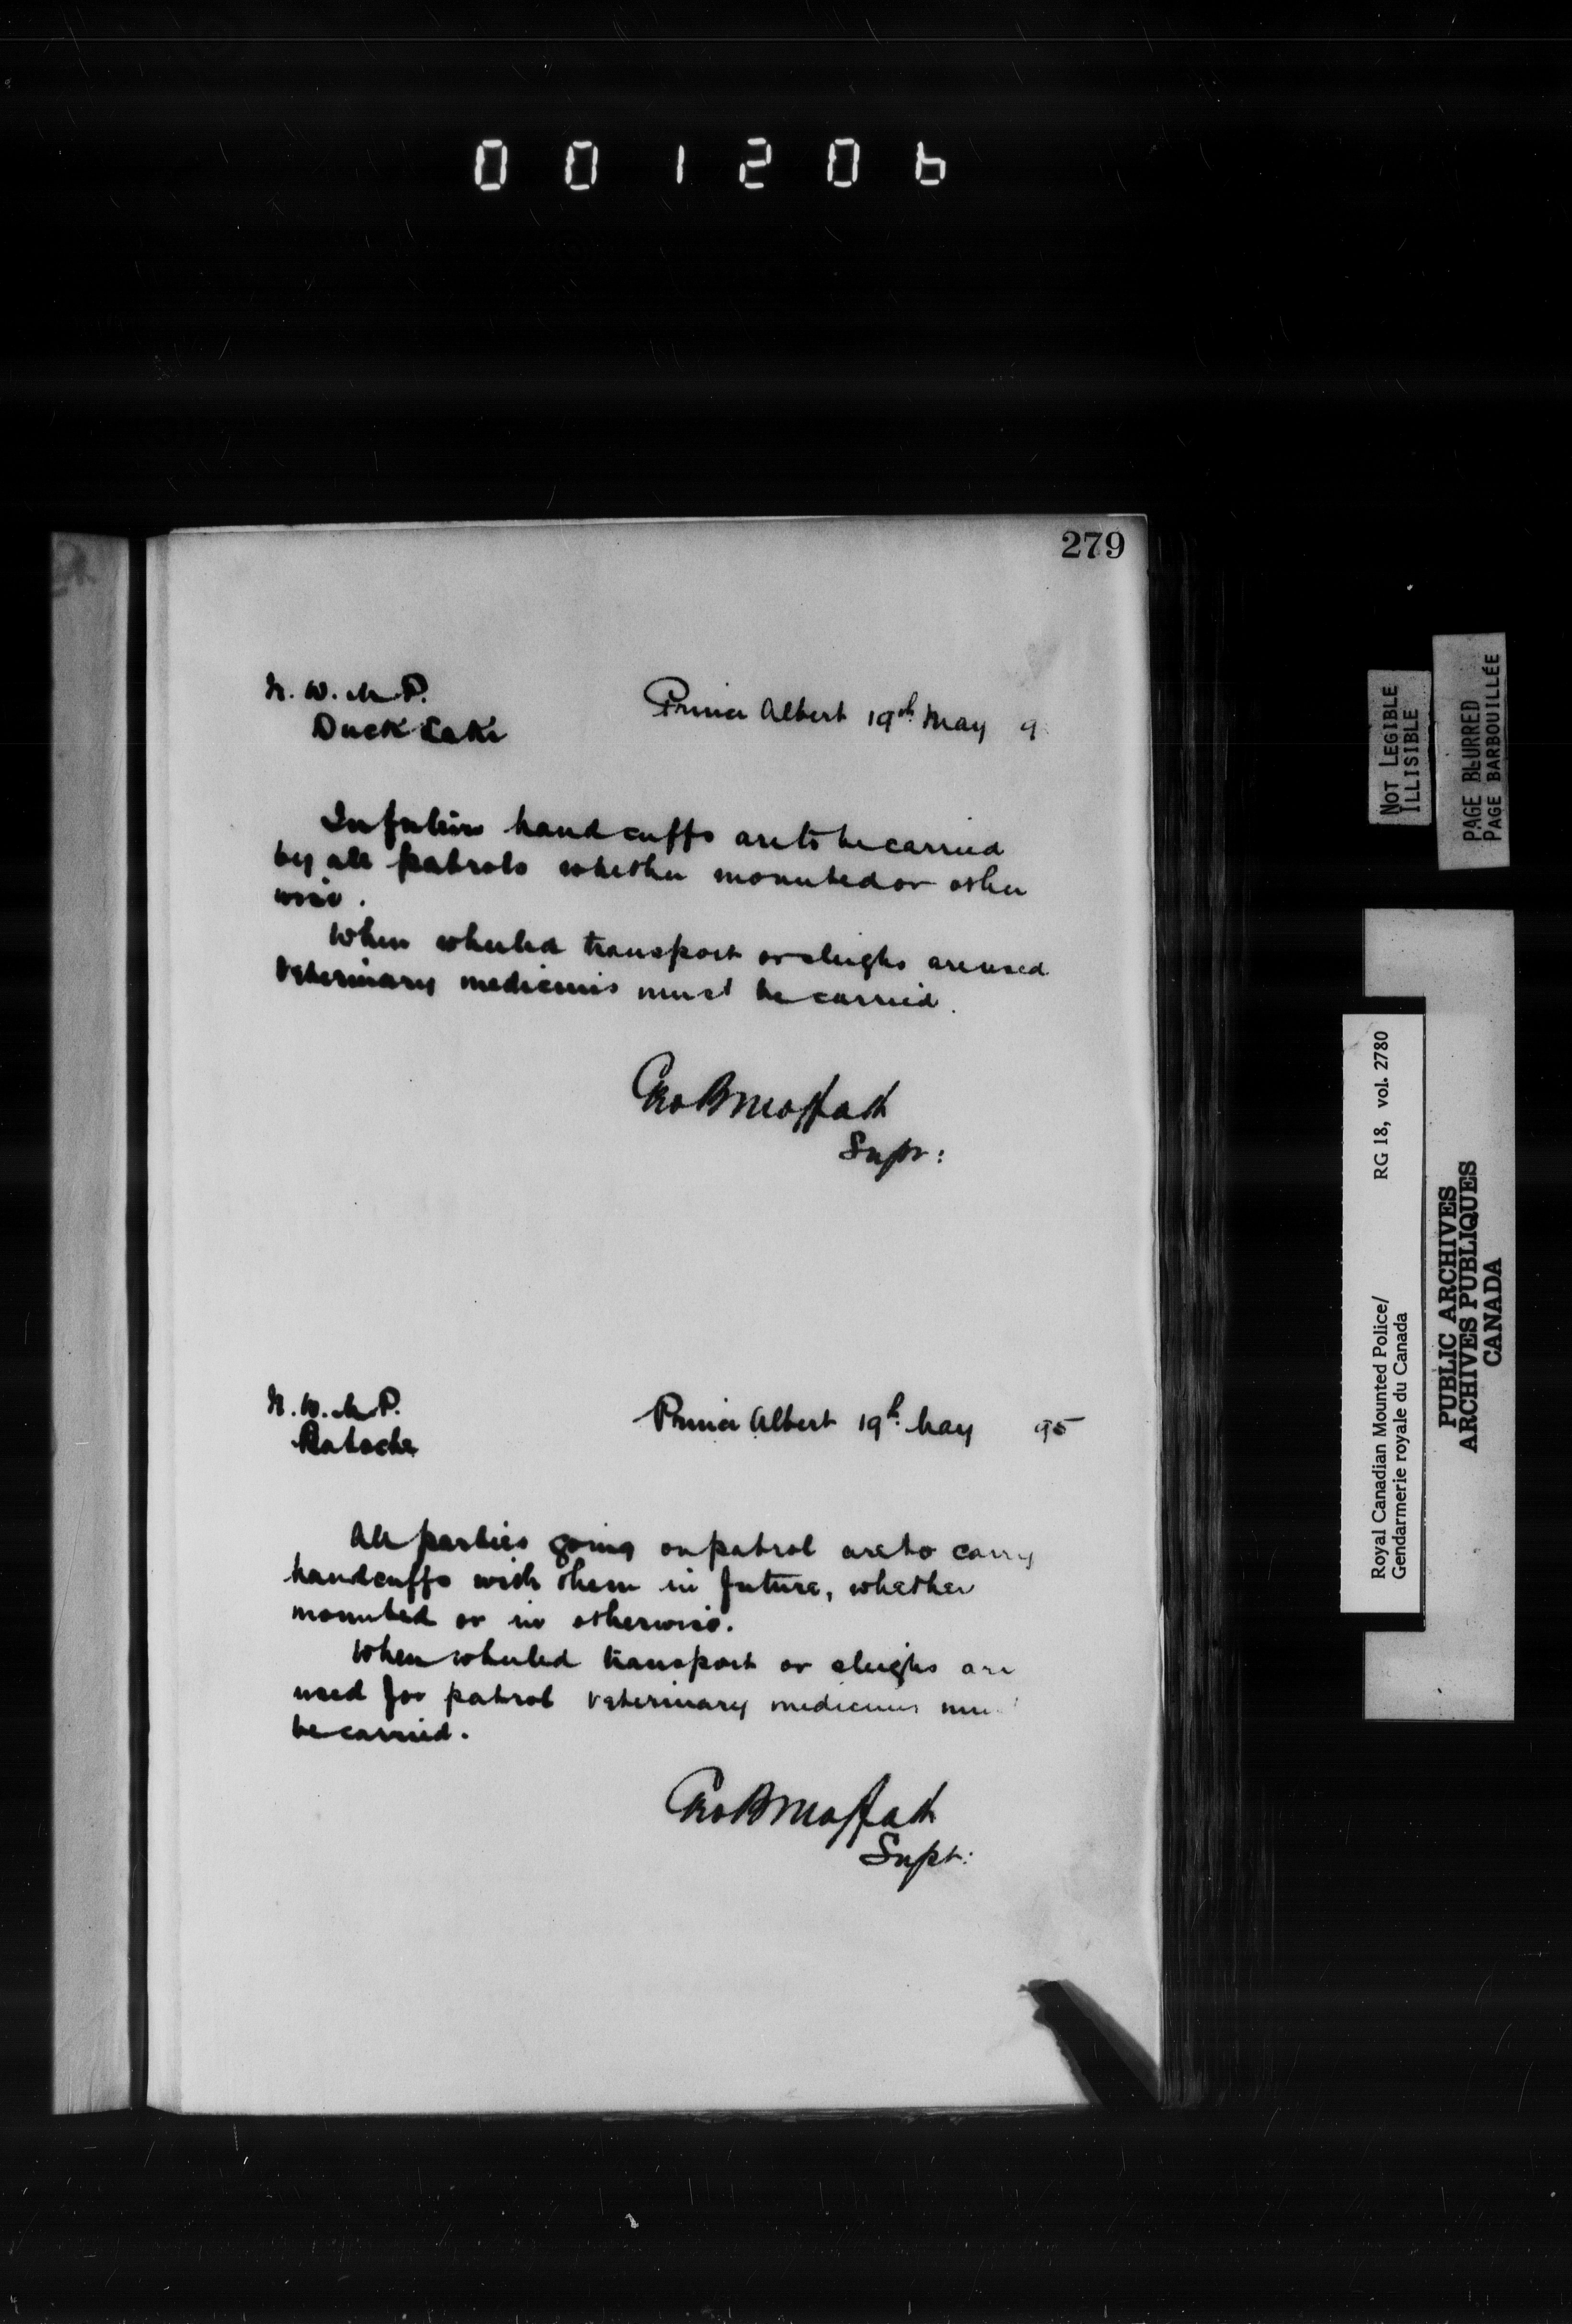 001206
279
N. W. M. P.
Duck Lake
Prince Albert 19th May 9
In future handcuffs are to be carried
by all patrols whether mounted or other
wise.
When wheeled transport or sleighs are used
Veterinary medicines must be carried.
Geo B Moffatt
Supt:
N. W. M. P.
Batoche
Prince Albert 19th May 95
All parties going on patrol are to carry
handcuffs with them in future, whether
mounted or in otherwise.
When wheeled transport or sleighs are
used for patrol veterinary medicines mu
be carried.
Geo B Moffatt
Supt:
NOT LEGIBLE
ILLISIBLE
PAGE BLURRED
PAGE BARBOUILLÉE
Royal Canadian Mounted Police/ RG 18, vol. 2780
Gendarmerie royale du Canada
PUBLIC ARCHIVES
ARCHIVES PUBLIQUES
CANADA